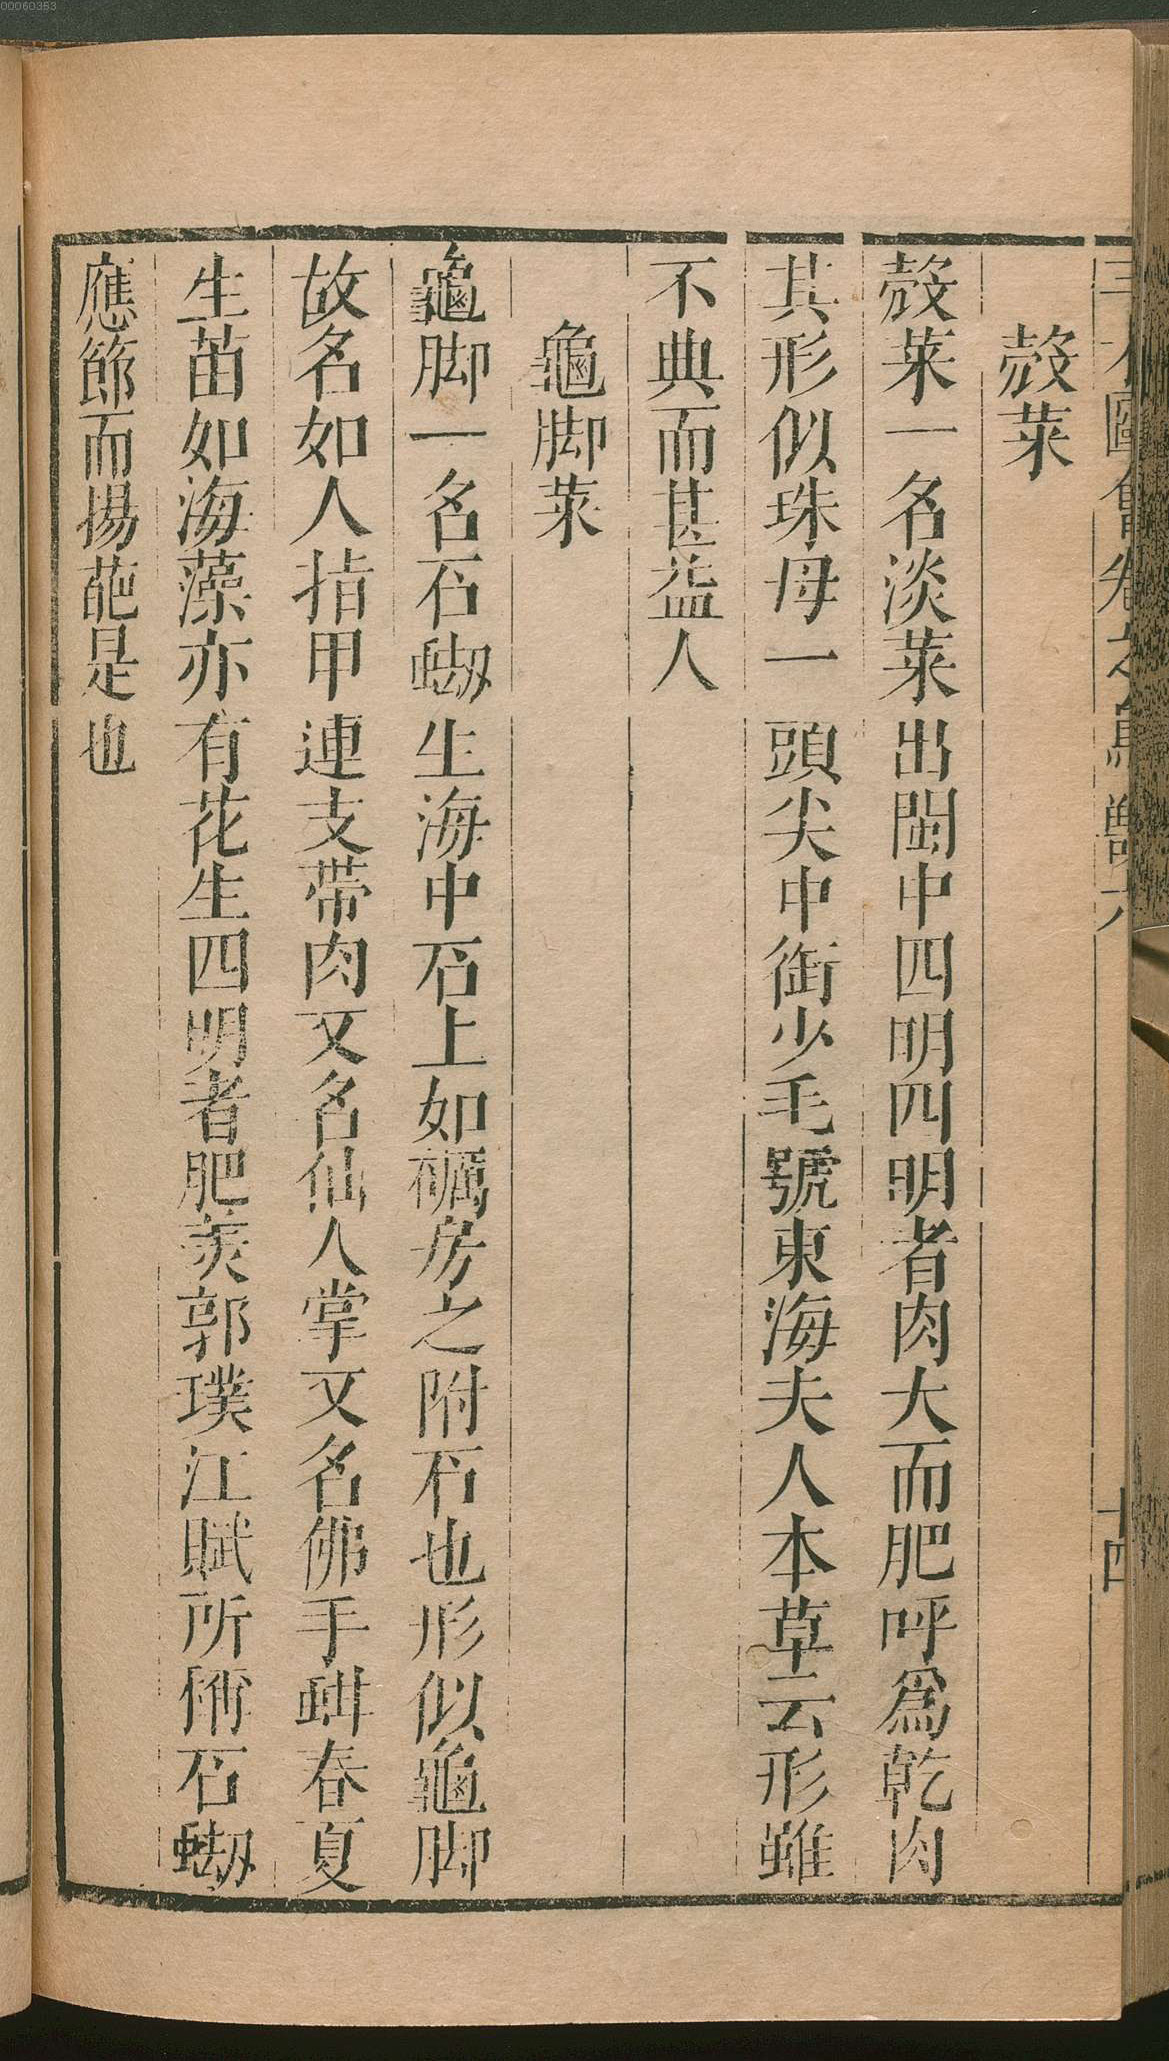 00060353
殼菜
殼菜一名淡菜出閩中四明四明者肉大而肥呼爲乾肉
其形似珠母一頭尖中銜少毛號東海夫人本草云形雖
不典而甚益人
龜脚菜
龜脚一名石蜐生海中石上如蠣房之附石也形似龜脚
故名如人指甲連支帶肉又名仙人掌又名佛手蚶春夏
生苗如海藻亦有花生四明者肥美郭璞江賦所謂石蜐
應節而揚葩是也